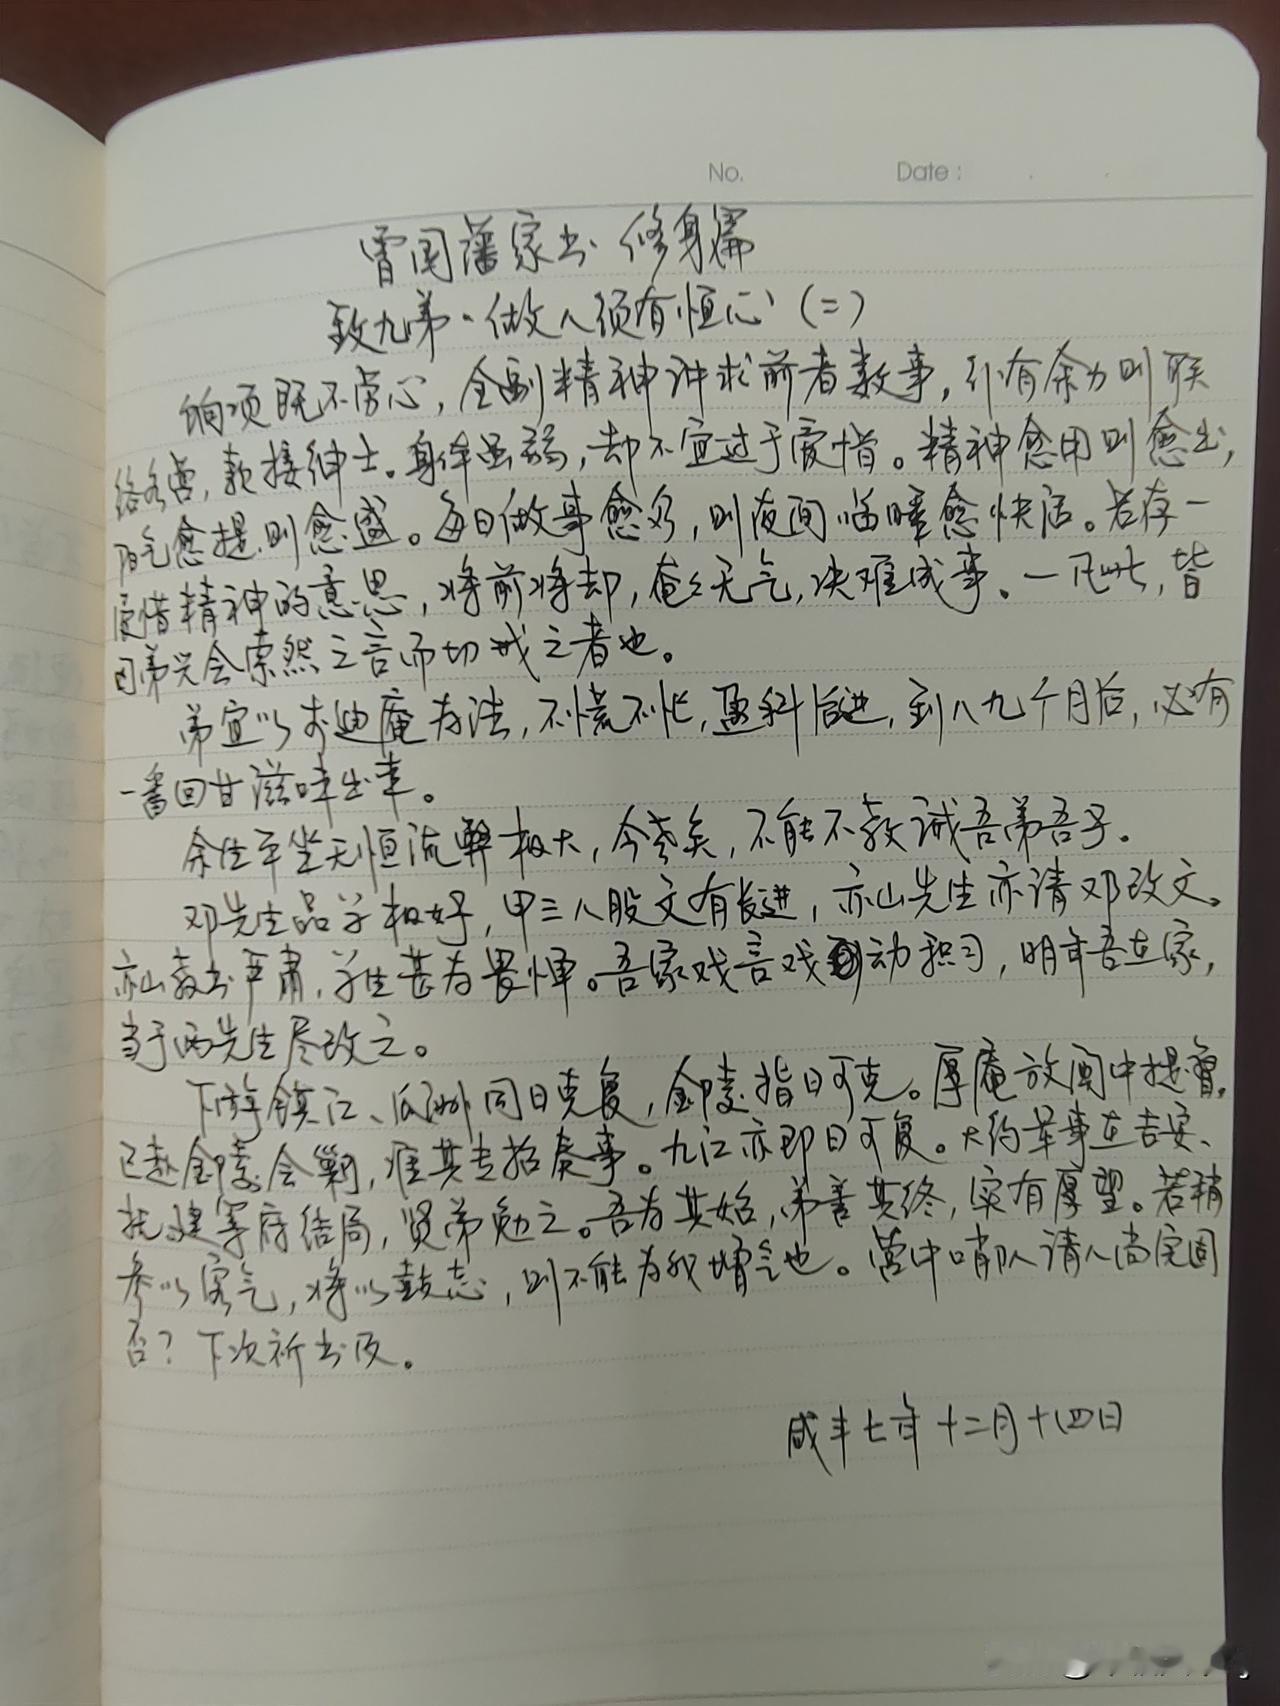 No. Date:
曾国藩家书 修身篇
致九弟·做人须有恒心(二)
饷项既不劳心,全副精神讲求前者数事,行有余力则联
络各营,款接绅士。身体虽弱,却不宜过于爱惜。精神愈用则愈出,
阳气愈提则愈盛。每日做事愈多,则夜间临睡愈快活。若存一
爱惜精神的意思,将前将却,奄奄无气,决难成事。一凡此,皆
因弟兴会索然之言而切戒之者也。
弟宜以李迪庵为法,不慌不忙,盈科后进,到八九个月后,必有
一番回甘滋味出来。
余生平坐无恒流弊极大,今老矣,不能不教诫吾弟吾子。
邓先生品学极好,甲三八股文有长进,亦山先生亦请邓改文。
亦山教书严肃,学生甚为畏惮。吾家戏言戏动积习,明年吾在家,
当于两先生尽改之。
下游镇江、瓜洲同日克复,金陵指日可克。厚庵放闽中提督,
已赴金陵会剿,准其专折奏事。九江亦即日可复。大约军事在吉安、
抚建等府结局,贤弟勉之。吾为其始,弟善其终,实有厚望。若稍
参以客气,将以鼓志,则不能为我增气也。营中哨队请人尚完固
否?下次祈书及。
咸丰七年十二月十四日